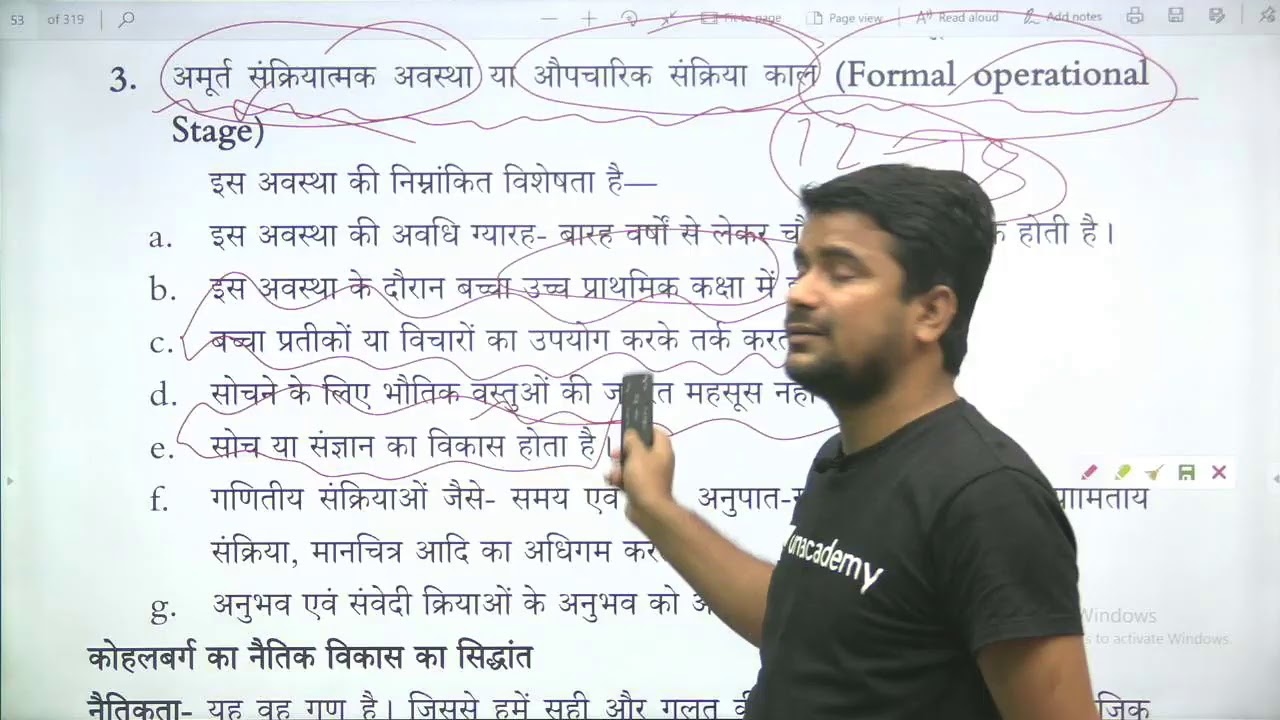 53 of 319 Fit to page Page view Read aloud Add notes
3. अमूर्त संक्रियात्मक अवस्था या औपचारिक संक्रिया काल (Formal operational
Stage)
12 - 18
इस अवस्था की निम्नांकित विशेषता है—
a. इस अवस्था की अवधि ग्यारह- बारह वर्षों से लेकर होती है।
b. इस अवस्था के दौरान बच्चा उच्च प्राथमिक कक्षा में
c. बच्चा प्रतीकों या विचारों का उपयोग करके तर्क
d. सोचने के लिए भौतिक वस्तुओं की महसूस
e. सोच या संज्ञान का विकास होता है।
f. गणितीय संक्रियाओं जैसे- समय एवं
संक्रिया, मानचित्र आदि का अधिगम
g. अनुभव एवं संवेदी क्रियाओं के अनुभव को
कोहलबर्ग का नैतिक विकास का सिद्धांत
नैतिकता- यह वह गुण है। जिससे हमें सही और गलत
unacademy
Windows
to activate Windows.